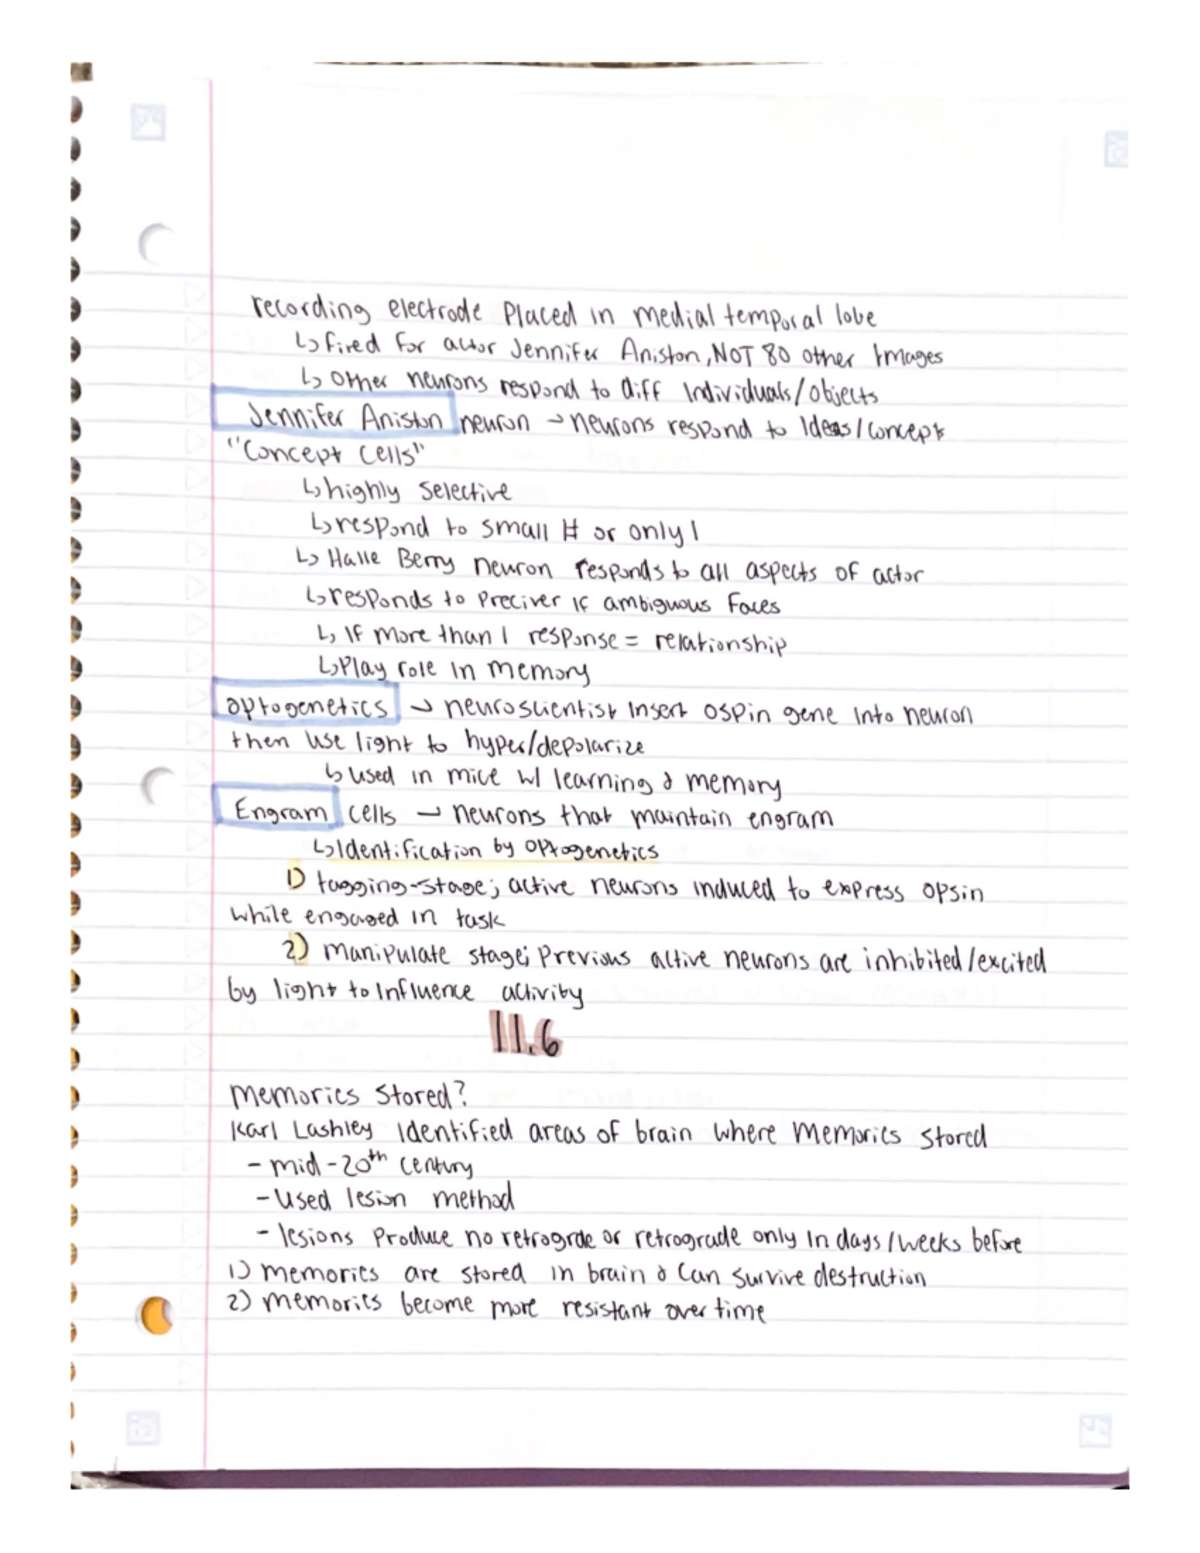 recording electrode Placed in medial temporal lobe
↳ fired for actor Jennifer Aniston, NOT 80 other Images
↳ Other neurons respond to diff Individuals/objects
Jennifer Aniston neuron → neurons respond to Ideas/concept
"Concept Cells"
↳ highly selective
↳ respond to small # or only 1
↳ Halle Berry neuron responds to all aspects of actor
↳ responds to Preciver if ambiguous faces
↳ If more than 1 response = relationship
↳ Play role in memory
optogenetics → neuroscientist Insert ospin gene Into neuron
then use light to hyper/depolarize
↳ used in mice w/ learning & memory
Engram cells → neurons that maintain engram
↳ Identification by optogenetics
1) tagging-stage; active neurons induced to express opsin
while engaged in task
2) manipulate stage; Previous active neurons are inhibited/excited
by light to Influence activity
11.6
Memories Stored?
Karl Lashley Identified areas of brain where Memories stored
- mid-20th century
- Used lesion method
- lesions Produce no retrogrde or retrograde only In days/weeks before
1) memories are stored in brain & Can survive destruction
2) memories become more resistant over time